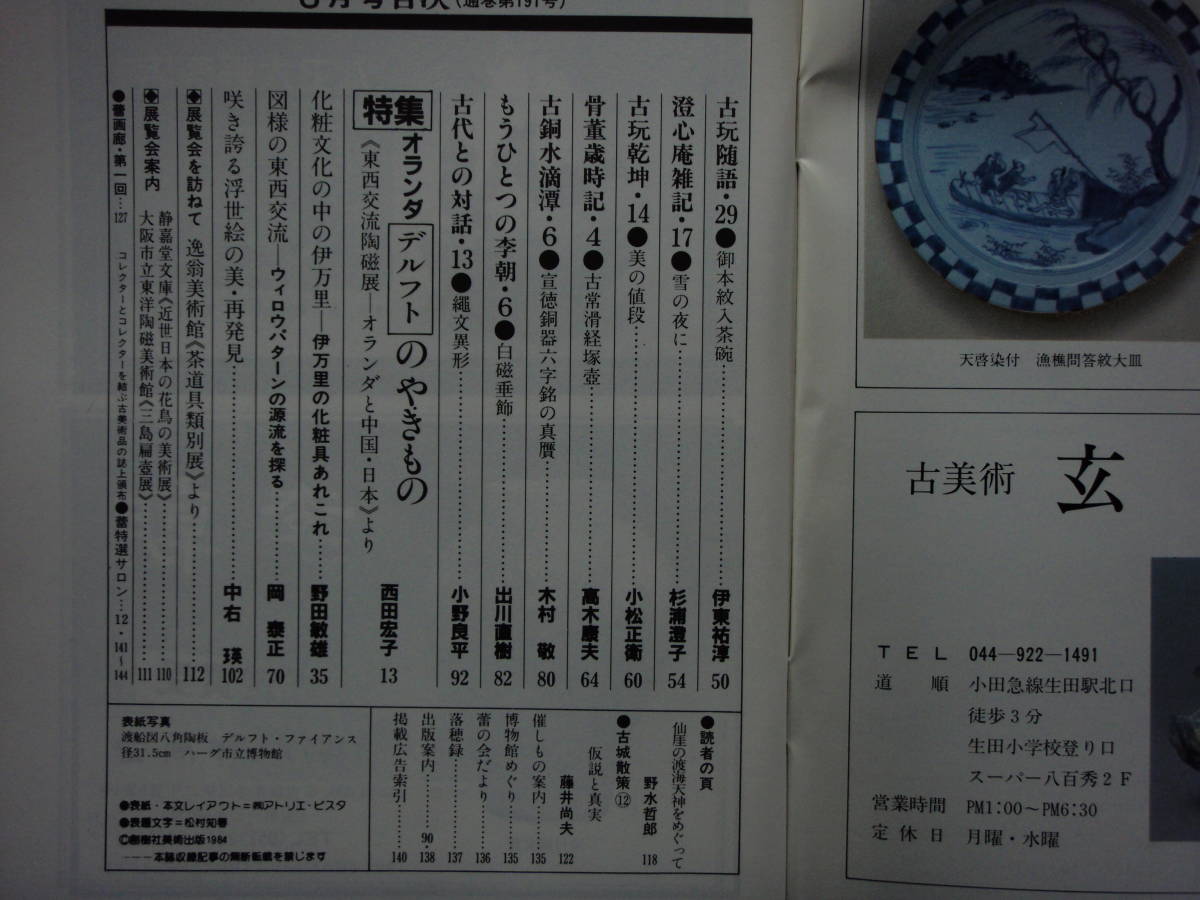 月号目次（通巻第191号）
古玩随語・29●御本紋入茶碗……伊東祐淳 50
澄心庵雑記・17●雪の夜に……杉浦澄子 54
古玩乾坤・14●美の値段……小松正衛 60
骨董歳時記・4●古常滑経塚壺……高木康夫 64
古銅水滴潭・6●宣徳銅器六字銘の真贋……木村 敬 80
もうひとつの李朝・6●白磁垂飾……出川直樹 82
古代との対話・13●縄文異形……小野良平 92
特集 オランダ デルフトのやきもの
《東西交流陶磁展―オランダと中国・日本》より 西田宏子 13
化粧文化の中の伊万里―伊万里の化粧具あれこれ……野田敏雄 35
図様の東西交流―ウィロウパターンの源流を探る……岡 泰正 70
咲き誇る浮世絵の美・再発見……中右 瑛 102
◆展覧会を訪ねて 逸翁美術館《茶道具類別展》より……112
◆展覧会案内 静嘉堂文庫《近世日本の花鳥の美術展》……110
大阪市立東洋陶磁美術館《三島扁壺展》……111
●書画廊・第一回…127 コレクターとコレクターを結ぶ古美術品の誌上頒布●蕾特選サロン…12・141～144
●読者の頁
仙崖の渡海天神をめぐって 野水哲郎 118
●古城散策⑫
仮説と真実 藤井尚夫 122
催しもの案内……135
博物館めぐり……135
蕾の会だより……136
落穂録……137
出版案内……90・138
掲載広告索引……140
表紙写真
渡船図八角陶板 デルフト・ファイアンス
径31.5cm ハーグ市立博物館
●表紙・本文レイアウト＝㈱アトリエ・ビスタ
●表題文字＝松村知春
©創樹社美術出版1984
―――本誌収録記事の無断転載を禁じます
天啓染付 漁樵問答紋大皿
古美術 玄
TEL 044―922―1491
道順 小田急線生田駅北口
徒歩3分
生田小学校登り口
スーパー八百秀2F
営業時間 PM1:00～PM6:30
定休日 月曜・水曜